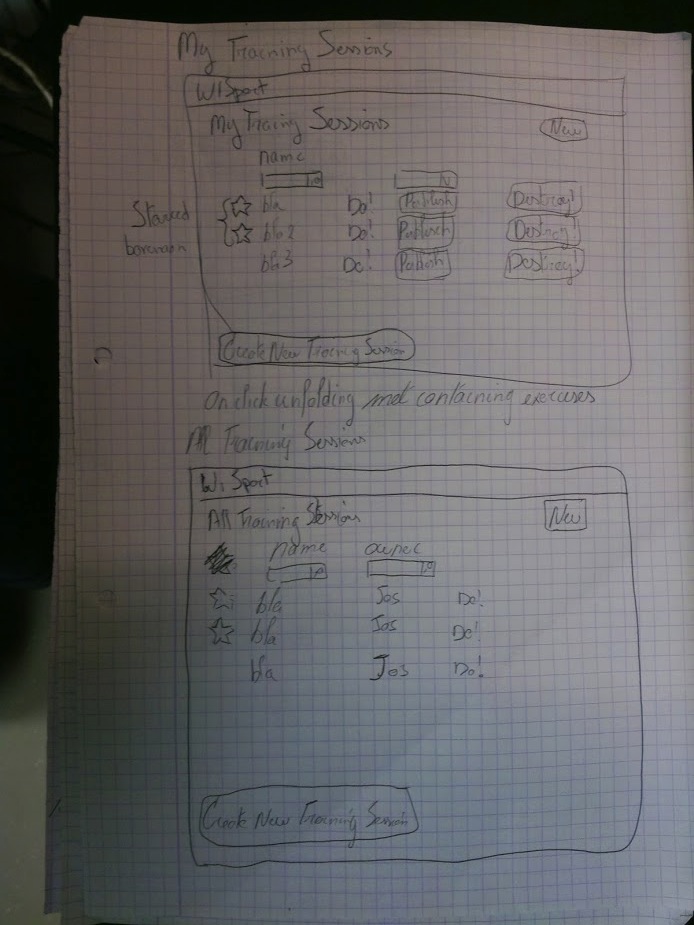 My Training Sessions
WISport
My Traing Sessions New
name
bla Do! Publish Destroy!
Starred bla2 Do! Publisch Destroy!
bovenaan bla3 Do! Publish Destroy!
Create New Training Session
On click unfolding met containing exercises
All Training Sessions
WiSport
All Training Sessions New
name owner
bla Jos Do!
bla Jos Do!
bla Jos Do!
Create New Training Session